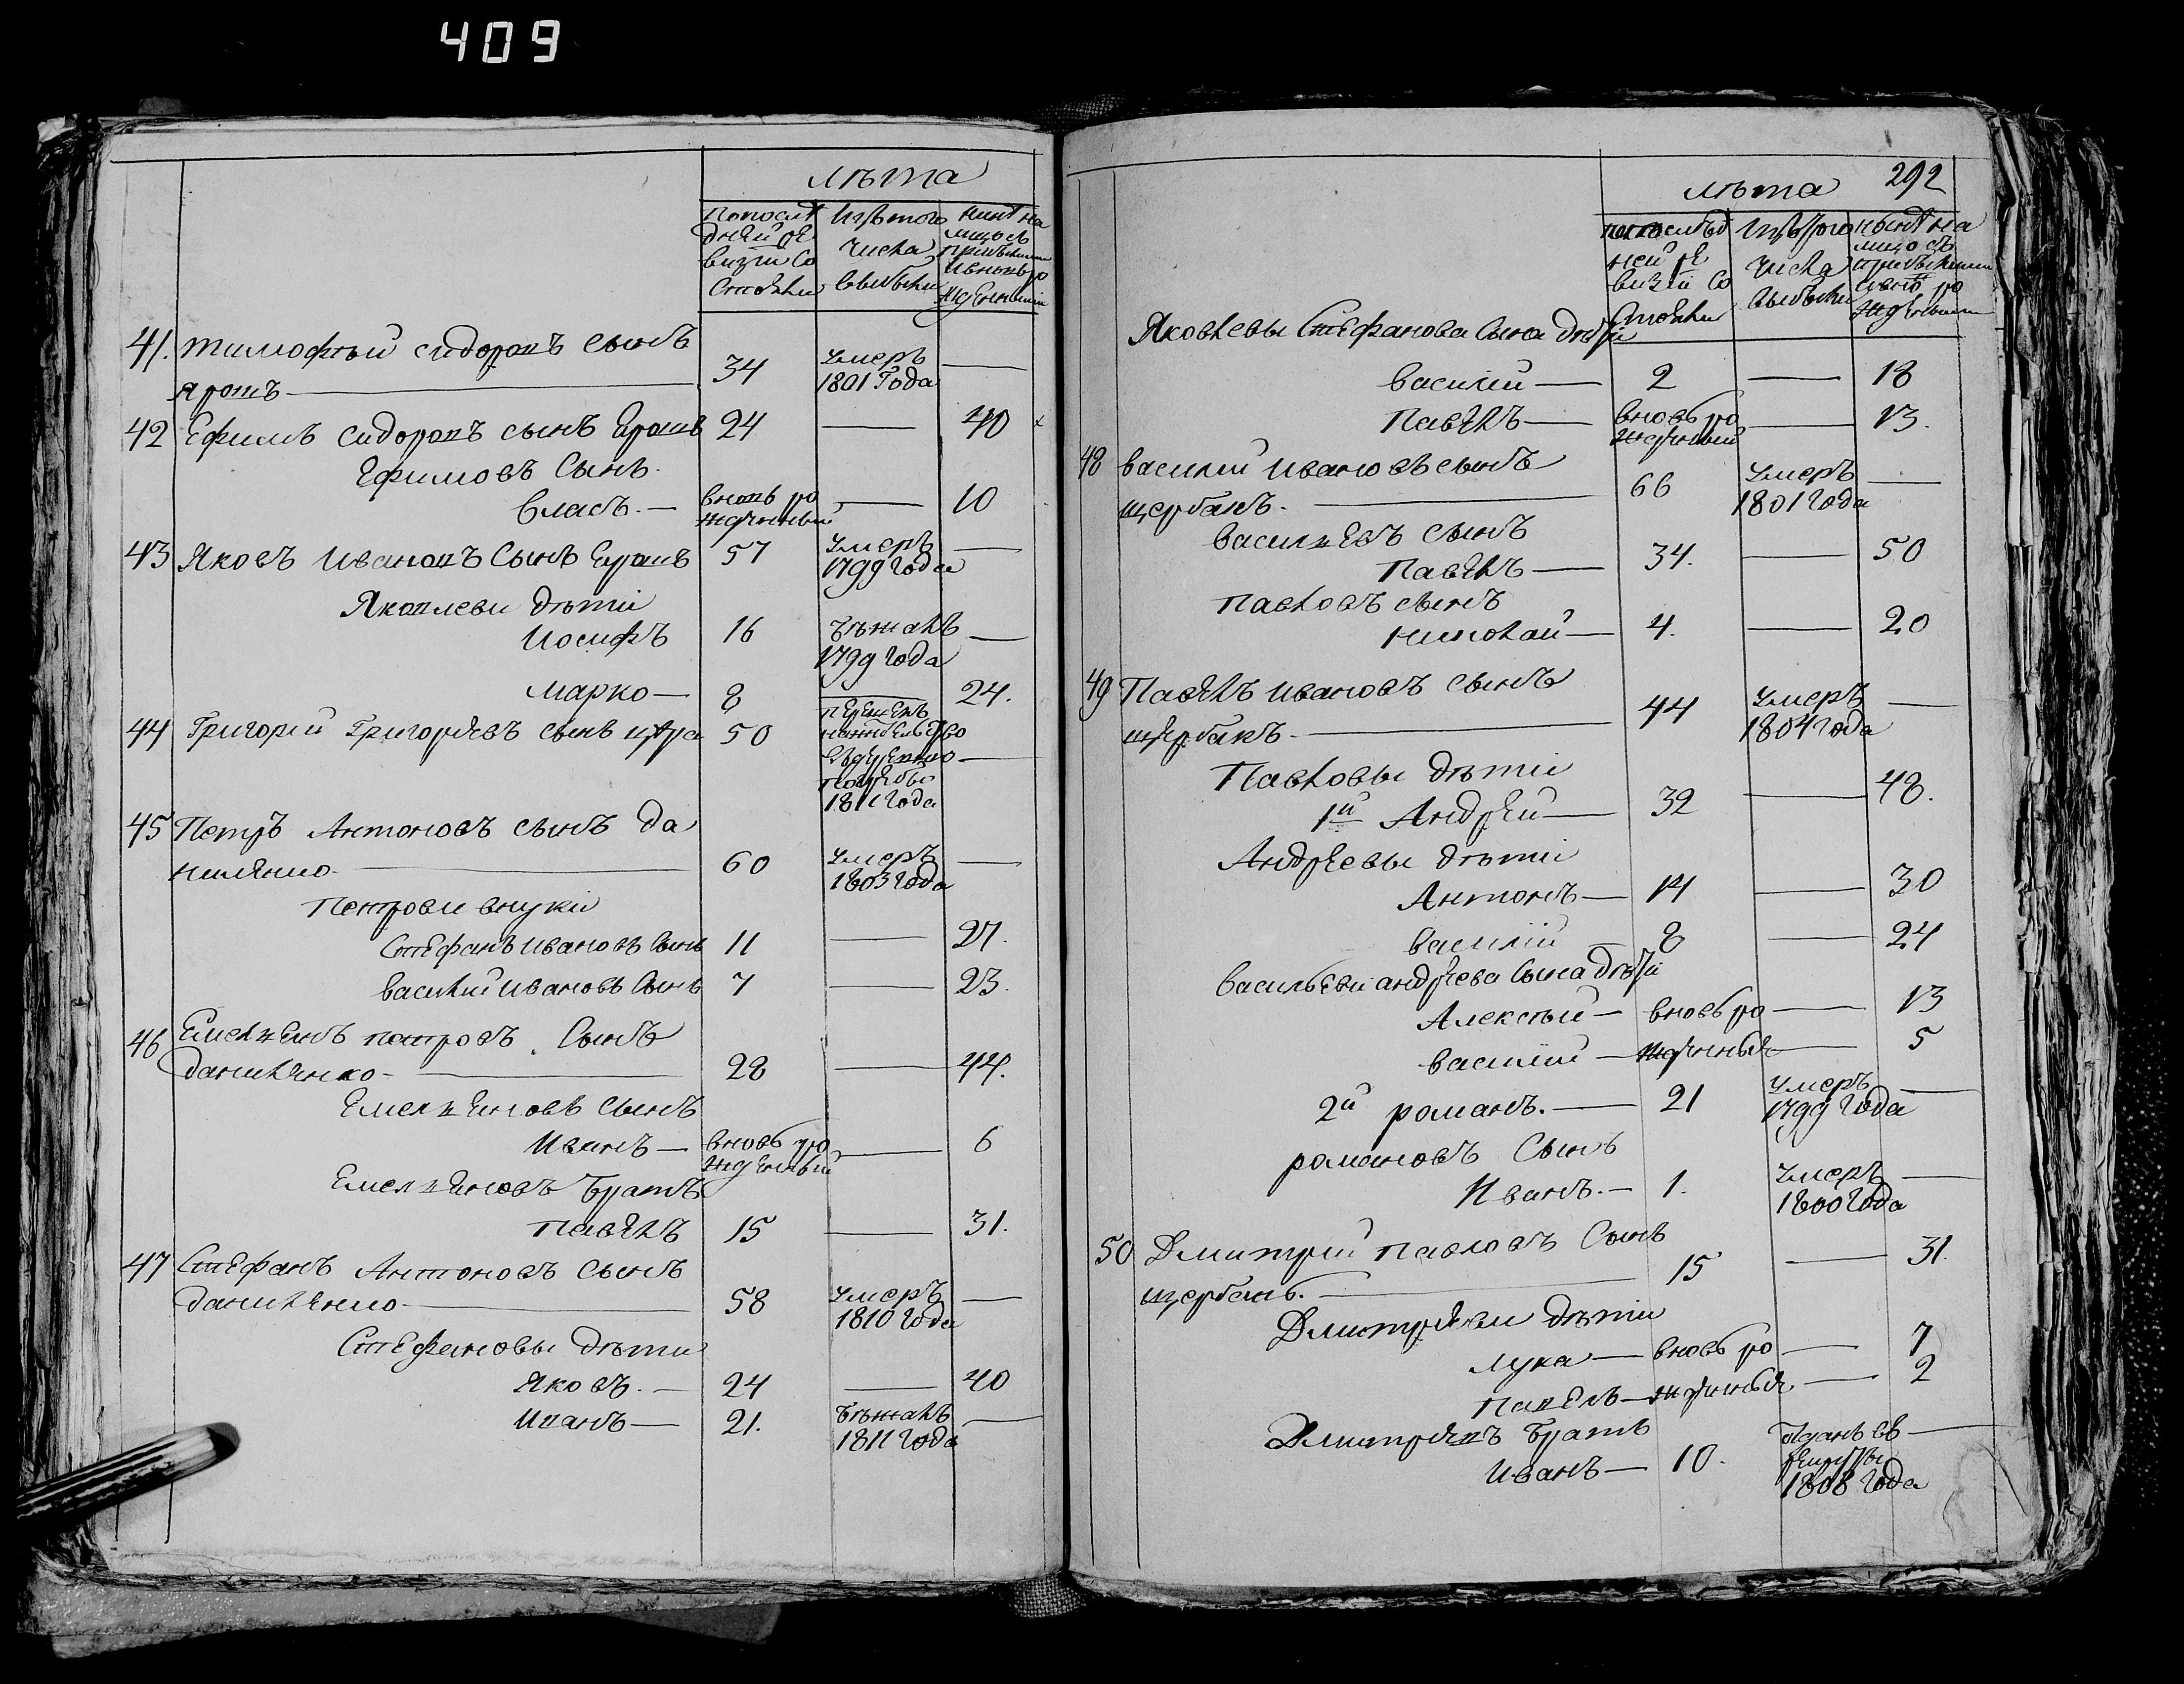 409
лѣта
По посл
дней ре
визіи со
стояли
Изъ того
числа
выбыли
нынѣ на
лицо съ
прибылыми
и вновь ро
жденными
41. Тимофѣй Сидоровъ сынъ
34 умеръ —
Ярошъ — 1801 Года
42 Ефимъ Сидоровъ сынъ Ерошъ 24 — 40
Ефимовъ Сынъ
Власъ. — вновь ро — 10
жденный
43 Яковъ Ивановъ Сынъ Ерошъ 57 умеръ —
1799 года
Яковлеви дѣти
Іосифъ 16 бѣжалъ —
1799 года
Марко — 8 — 24.
44 Григорій Григорьевъ сынъ 50
1811 года
45 Петръ Антоновъ сынъ Да
ниленко — 60 умеръ —
1803 года
Петрови внуки
Стефанъ Ивановъ Сынъ 11 — 27.
Василий Ивановъ Сынъ 7 — 23.
46 Емельянъ Петровъ Сынъ
Даниленко — 28 — 44.
Емельяновъ сынъ
Иванъ — вновь ро — 6
жденный
Емельяновъ братъ
Павелъ 15 — 31.
47 Стефанъ Антоновъ сынъ
Даниленко — 58 умеръ —
1810 года
Стефановы дѣти
Яковъ. — 24 — 40
Иванъ — 21. бѣжалъ —
1811 года
292
лѣта
по послѣд
ней ре
визіи со
стояли
Изъ того
числа
выбыли
нынѣ на
лицо съ
прибылыми
и вновь ро
жденными
Яковлевы Стефанова Сына дѣти
Василий — 2 — 18
Павелъ — вновь ро — 13.
жденный
48 Василий Ивановъ сынъ
щербакъ. — 66 умеръ —
1801 года
Васильевъ сынъ
Павелъ — 34. — 50
Павловъ сынъ
Николай — 4. — 20
49 Павелъ Ивановъ сынъ
щербакъ — 44 умеръ —
1804 года
Павловы дѣти
1й Андрей — 32 — 48.
Андреевы дѣти
Антонъ — 14 — 30
Василій — 8 — 24
Васильеви андреева Сына дѣти
Алексѣй — вновь ро — 13
Василій — жденныя — 5
2й романъ. — 21 умеръ —
1799 года
романовъ Сынъ
Иванъ. — 1. умеръ —
1800 года
50 Дмитрий Павловъ Сынъ
щербакъ. — 15 — 31.
Дмитреви дѣти
Лука — вновь ро — 7
Павелъ — жденныя — 2
Дмитревъ братъ
Иванъ — 10. отданъ въ —
рекруты
1808 года